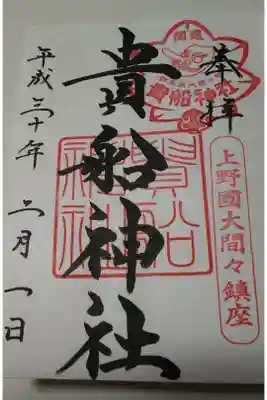 奉拝
開運
貴船神社
上野國大間々鎮座
貴船神社
貴船神社
平成三十年 二月一日